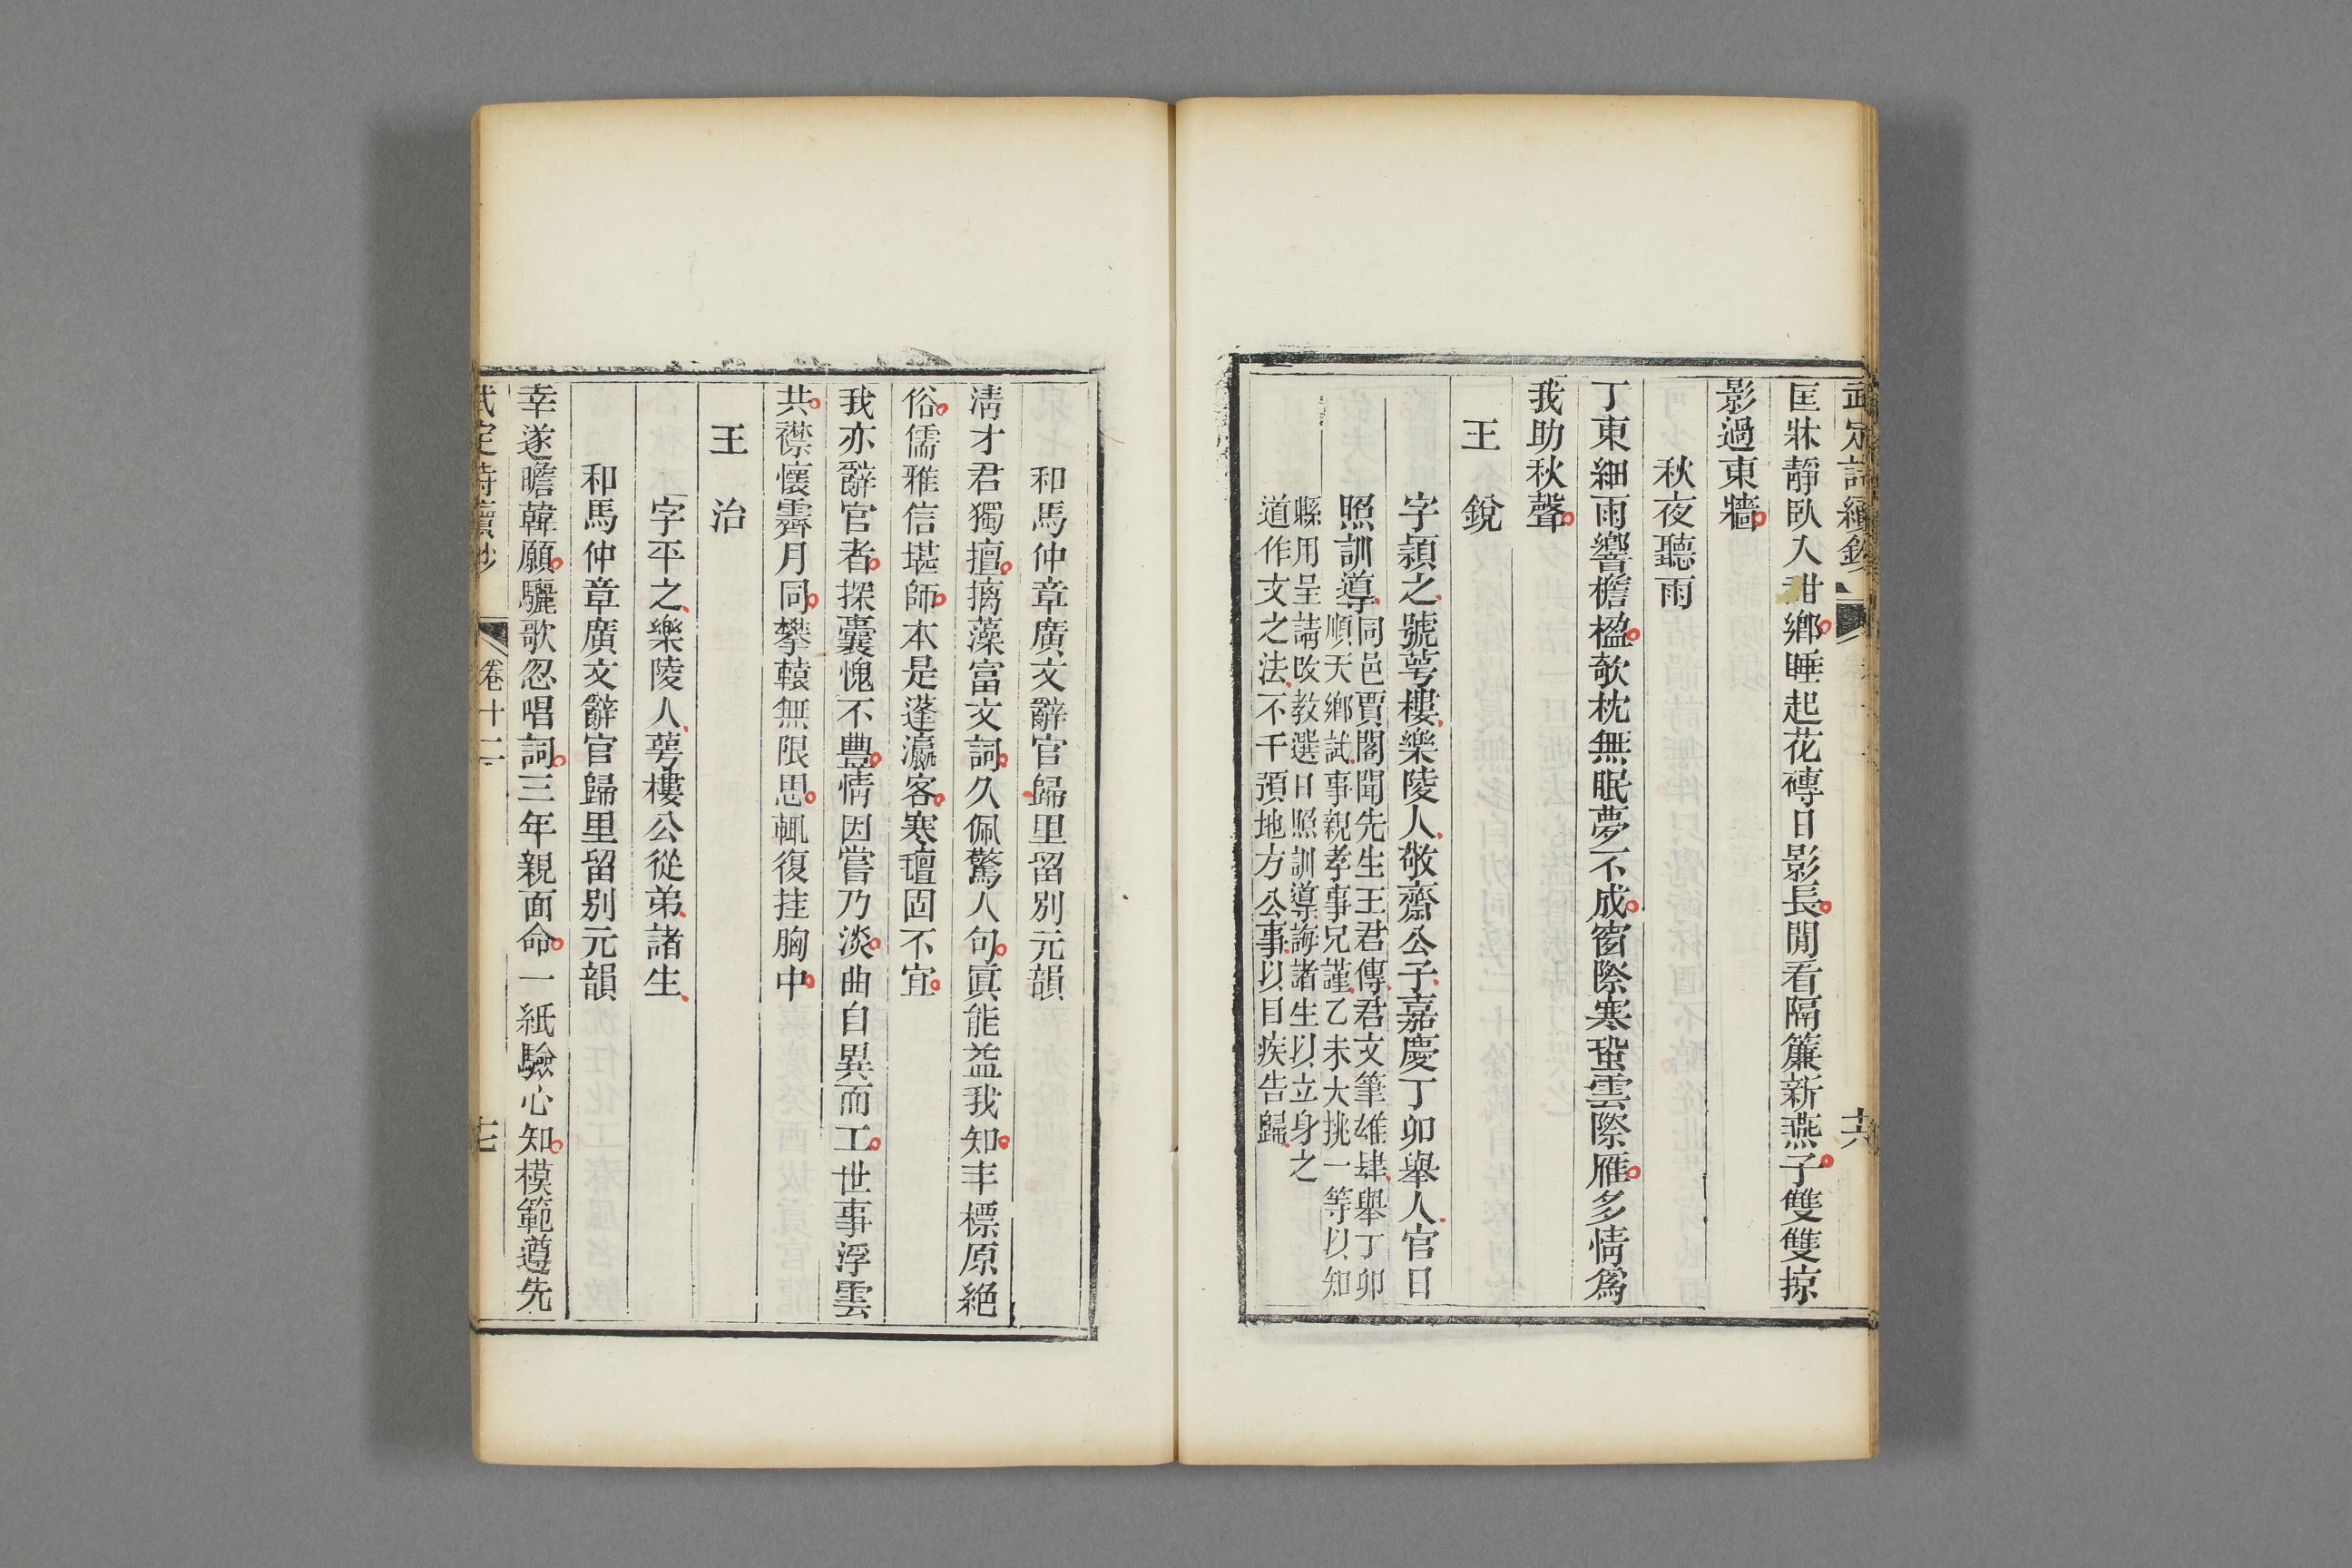 武定詩續鈔 十六
匡牀靜臥入甜鄉睡起花磚日影長閒看隔簾新燕子雙雙掠
影過東牆
秋夜聽雨
丁東細雨響檐楹欹枕無眠夢不成窗際寒蛩雲際雁多情爲
我助秋聲
王 銳
字頴之號萼樓樂陵人敬齋公子嘉慶丁卯舉人官日
照訓導
同邑賈閣聞先生王君傳君文筆雄肆舉丁卯
順天鄉試事親孝事兄謹乙未大挑一等以知
縣用呈請改教選日照訓導誨諸生以立身之
道作文之法不干預地方公事以目疾告歸
和馬仲章廣文辭官歸里留別元韻
淸才君獨擅摛藻富文詞久佩驚人句眞能益我知丰標原絕
俗儒雅信堪師本是蓬瀛客寒氊固不宜
我亦辭官者探囊愧不豐情因嘗乃淡曲自異而工世事浮雲
共襟懷霽月同攀轅無限思輒復挂胸中
王 治
字平之樂陵人萼樓公從弟諸生
和馬仲章廣文辭官歸里留別元韻
幸遂瞻韓願驪歌忽唱詞三年親面命一紙驗心知模範遵先
武定詩續鈔 卷十二 十七